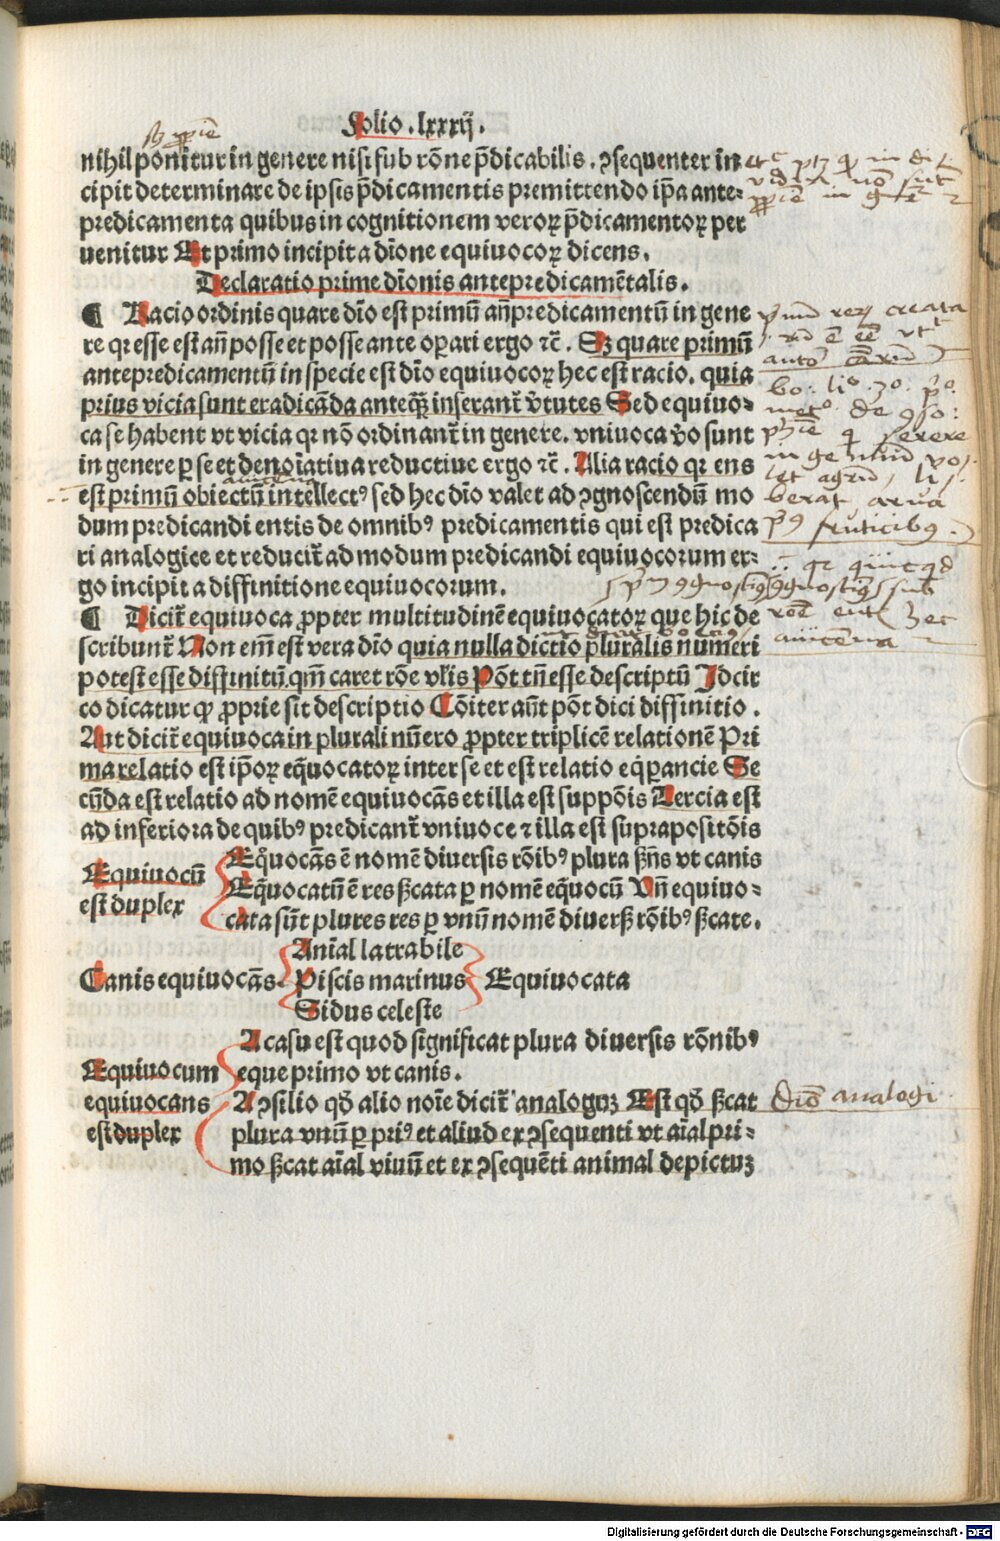 Folio .lxxxij.
nihil ponitur in genere nisi sub rõne p̃dicabilis . ꝯsequenter in
cipit determinare de ipsis p̃dicamentis premittendo ip̃a ante⸗
predicamenta quibus in cognitionem veroꝝ p̃dicamentoꝝ per
uenitur Et primo incipit a diõne equiuocoꝝ dicens.
Declaratio prime diõnis antepredicamẽtalis.
¶ Racio ordinis quare diõ est primũ an̄predicamentũ in gene
re qꝛ esse est an̄ posse et posse ante oꝑari ergo ⁊c̃ . Sꝫ quare primũ
antepredicamentũ in specie est diõ equiuocoꝝ hec est racio. quia
prius vicia sunt eradicãda anteꝙ̃ inserant᷑ v̓tutes Sed equiuo⸗
ca se habent vt vicia qꝛ nõ ordinant᷑ in genere. vniuoca v̓o sunt
in genere ꝑ se et denoĩatiua reductiue ergo ⁊c̃ . Alia racio qꝛ ens
est primũ obiectũ intellectꝰ sed hec diõ valet ad ꝯgnoscendũ mo
dum predicandi entis de omnibꝰ predicamentis qui est predica
ri analogice et reducit᷑ ad modum predicandi equiuocorum er⸗
go incipit a diffinitione equiuocorum.
¶ Dicit᷑ equiuoca ꝓpter multitudinẽ equiuocatoꝝ que hic de
scribunt᷑ Non em̃ est vera diõ quia nulla dictio pluralis numeri
potest esse diffinitũ. qm̃ caret rõe vl̓is Põt tñ esse descriptũ Idcir
co dicatur ꝙ ꝓprie sit descriptio Cõiter aũt põt dici diffinitio .
Aut dicit᷑ equiuoca in plurali nũero ꝓpter triplicẽ relationẽ Pri
ma relatio est ip̃oꝝ eq̃uocatoꝝ inter se et est relatio eq̃ꝑancie Se
cũda est relatio ad nomẽ equiuocãs et illa est suppõis Tercia est
ad inferiora de quibꝰ predicant᷑ vniuoce ⁊ illa est suprapositõis
Equiuocũ
est duplex
Eq̃uocãs ẽ nomẽ diuersis rõibꝰ plura ẞñs vt canis
Eq̃uocatũ ẽ res ẞcata ꝑ nomẽ eq̃uocũ Vñ equiuo⸗
cata sũt plures res ꝑ vnũ nomẽ diuerß rõibꝰ ẞcate.
Canis equiuocãs.
Anĩal latrabile
Piscis marinus
Sidus celeste
Equiuocata
Equiuocum
equiuocans
est duplex
A casu est quod significat plura diuersis rõnibꝰ
eque primo vt canis.
A ꝯsilio qð alio noĩe dicit᷑ analoguꝫ Est qð ẞcat
plura vnũ ꝑ priꝰ et aliud ex ꝯsequenti vt aĩal pri⸗
mo ẞcat aĩal viuũ et ex ꝯsequẽti animal depictuꝫ
diõ analogi
Digitalisierung gefördert durch die Deutsche Forschungsgemeinschaft - DFG